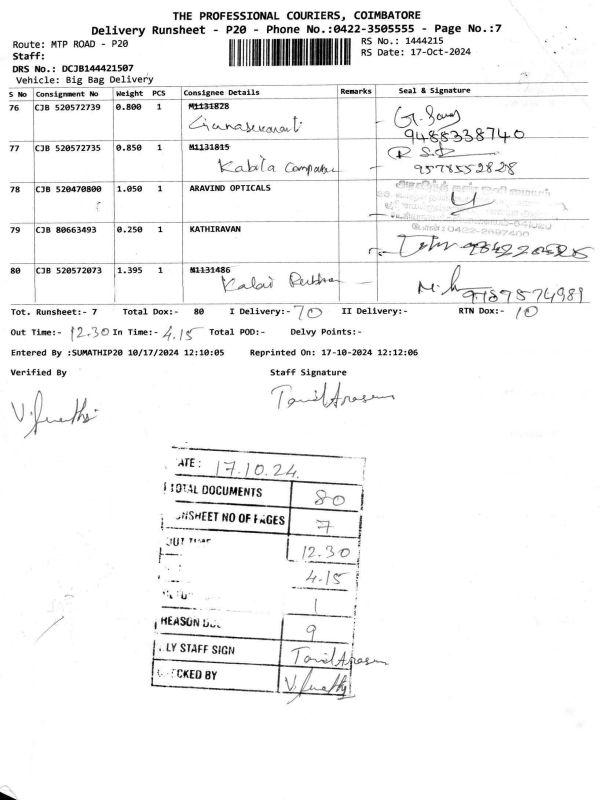 THE PROFESSIONAL COURIERS, COIMBATORE
Delivery Runsheet - P20 - Phone No.:0422-3505555 - Page No.:7
Route: MTP ROAD - P20 RS No.: 1444215
Staff: RS Date: 17-Oct-2024
DRS No.: DCJB144421507
Vehicle: Big Bag Delivery
S No Consignment No Weight PCS Consignee Details Remarks Seal & Signature
76 CJB 520572739 0.800 1 M1131828
9488338740
77 CJB 520572735 0.850 1 M1131815
Kabila 9578552828
78 CJB 520470800 1.050 1 ARAVIND OPTICALS
79 CJB 80663493 0.250 1 KATHIRAVAN
80 CJB 520572073 1.395 1 M1131486
Tot. Runsheet:- 7 Total Dox:- 80 I Delivery:- 70 II Delivery:- RTN Dox:- 10
Out Time:- 12.30 In Time:- 4.15 Total POD:- Delvy Points:-
Entered By :SUMATHIP20 10/17/2024 12:10:05 Reprinted On: 17-10-2024 12:12:06
Verified By Staff Signature
ATE : 17.10.24
TOTAL DOCUMENTS 80
NSHEET NO OF PAGES 7
12.30
4.15
1
REASON 9
LY STAFF SIGN
CKED BY